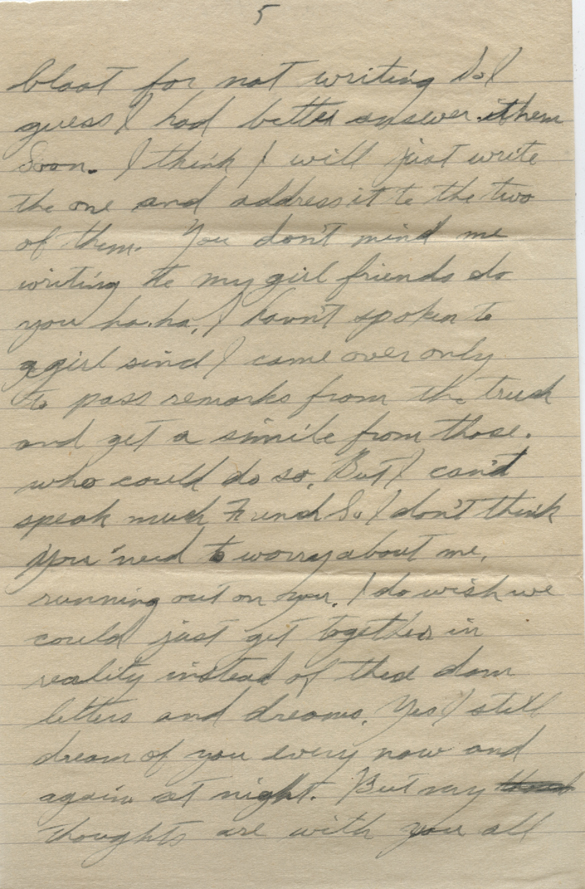 5
bloat for not writing So I
guess I had better answer them
Soon. I think I will just write
the one and address it to the two
of them. You don't mind me
writing to my girl friends do
you ha.ha. I havn't spoken to
a girl sinc I came over only
to pass remarks from the truck
and get a simile from those.
who could do so. But I can't
speak much French So I don't think
you need to worry about me,
running out on you. I do wish we
could just get together in
reality instead of these dam
letters and dreams. Yes I still
dream of you every now and
again at night. But my
thoughts are with you all